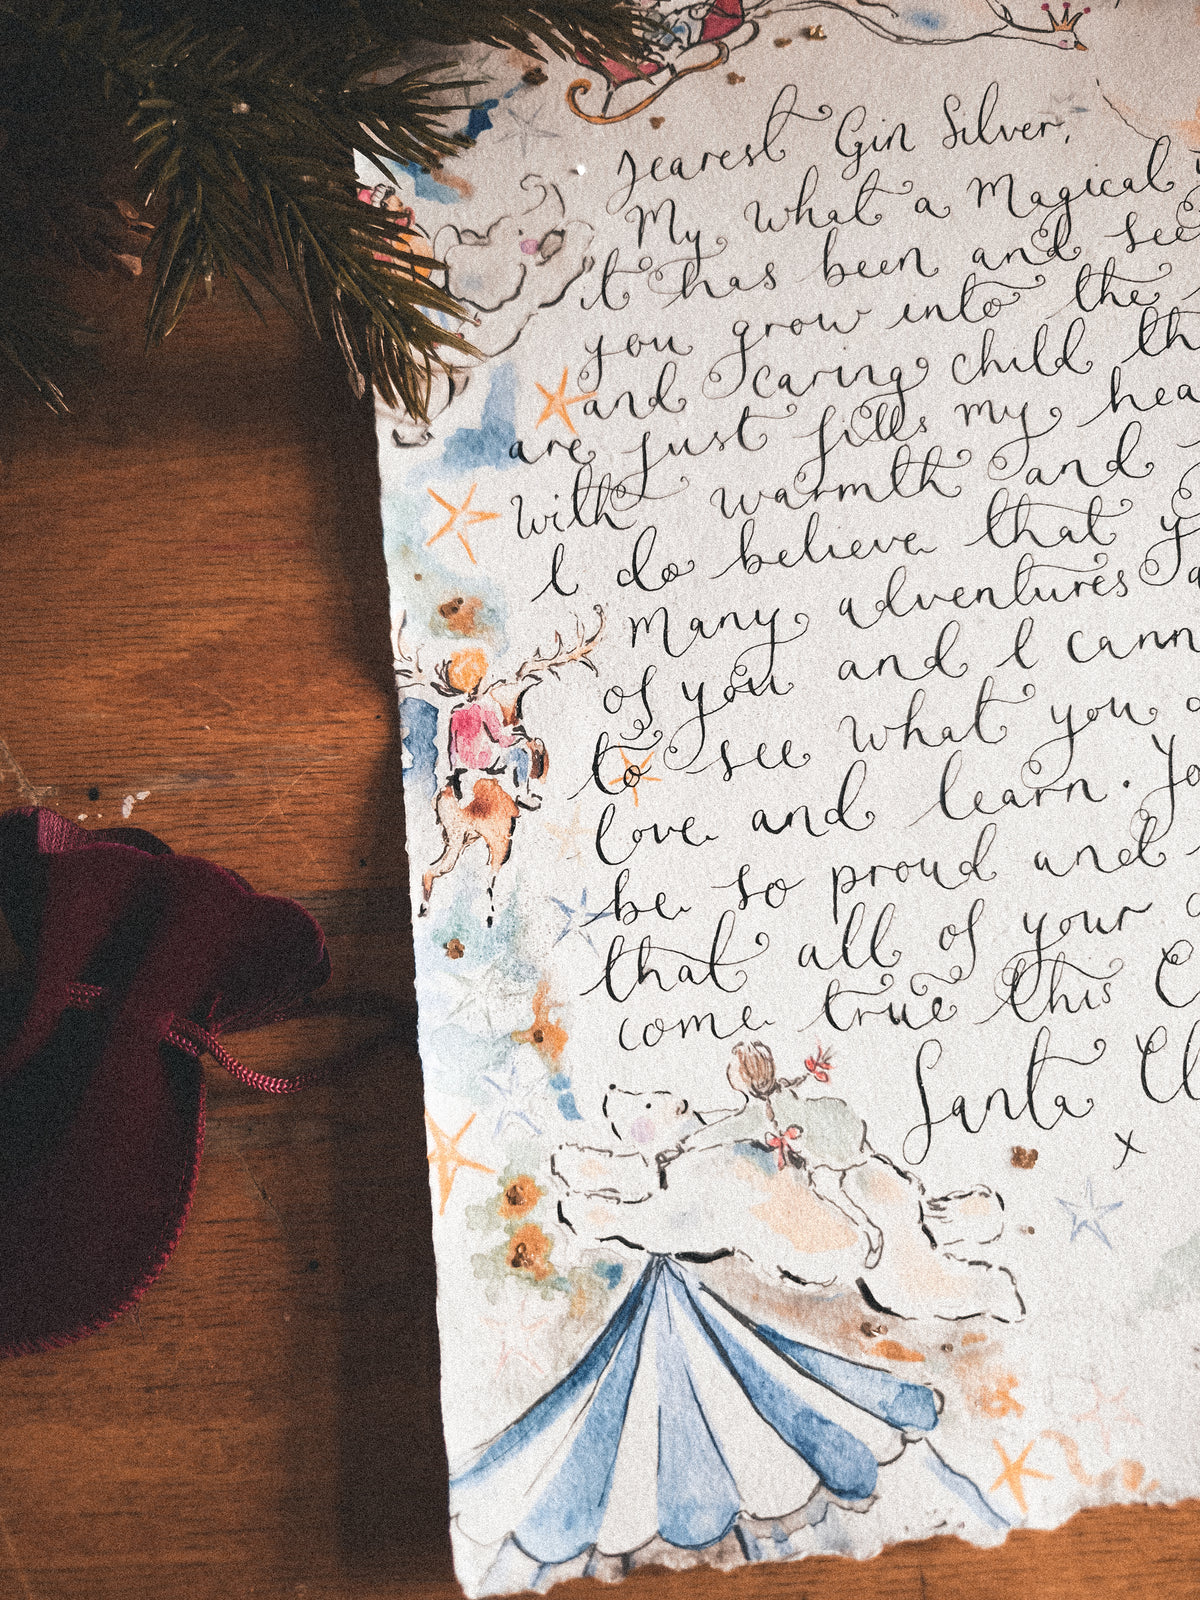 Dearest Gin Silver,
My what a Magical
it has been and see
you grow into the
and caring child th
are just fills my hea
with warmth and
I do believe that y
many adventures a
of you and I cann
to see what you
love and learn. Yo
be so proud and
that all of your
come true this C
Santa Cl
x